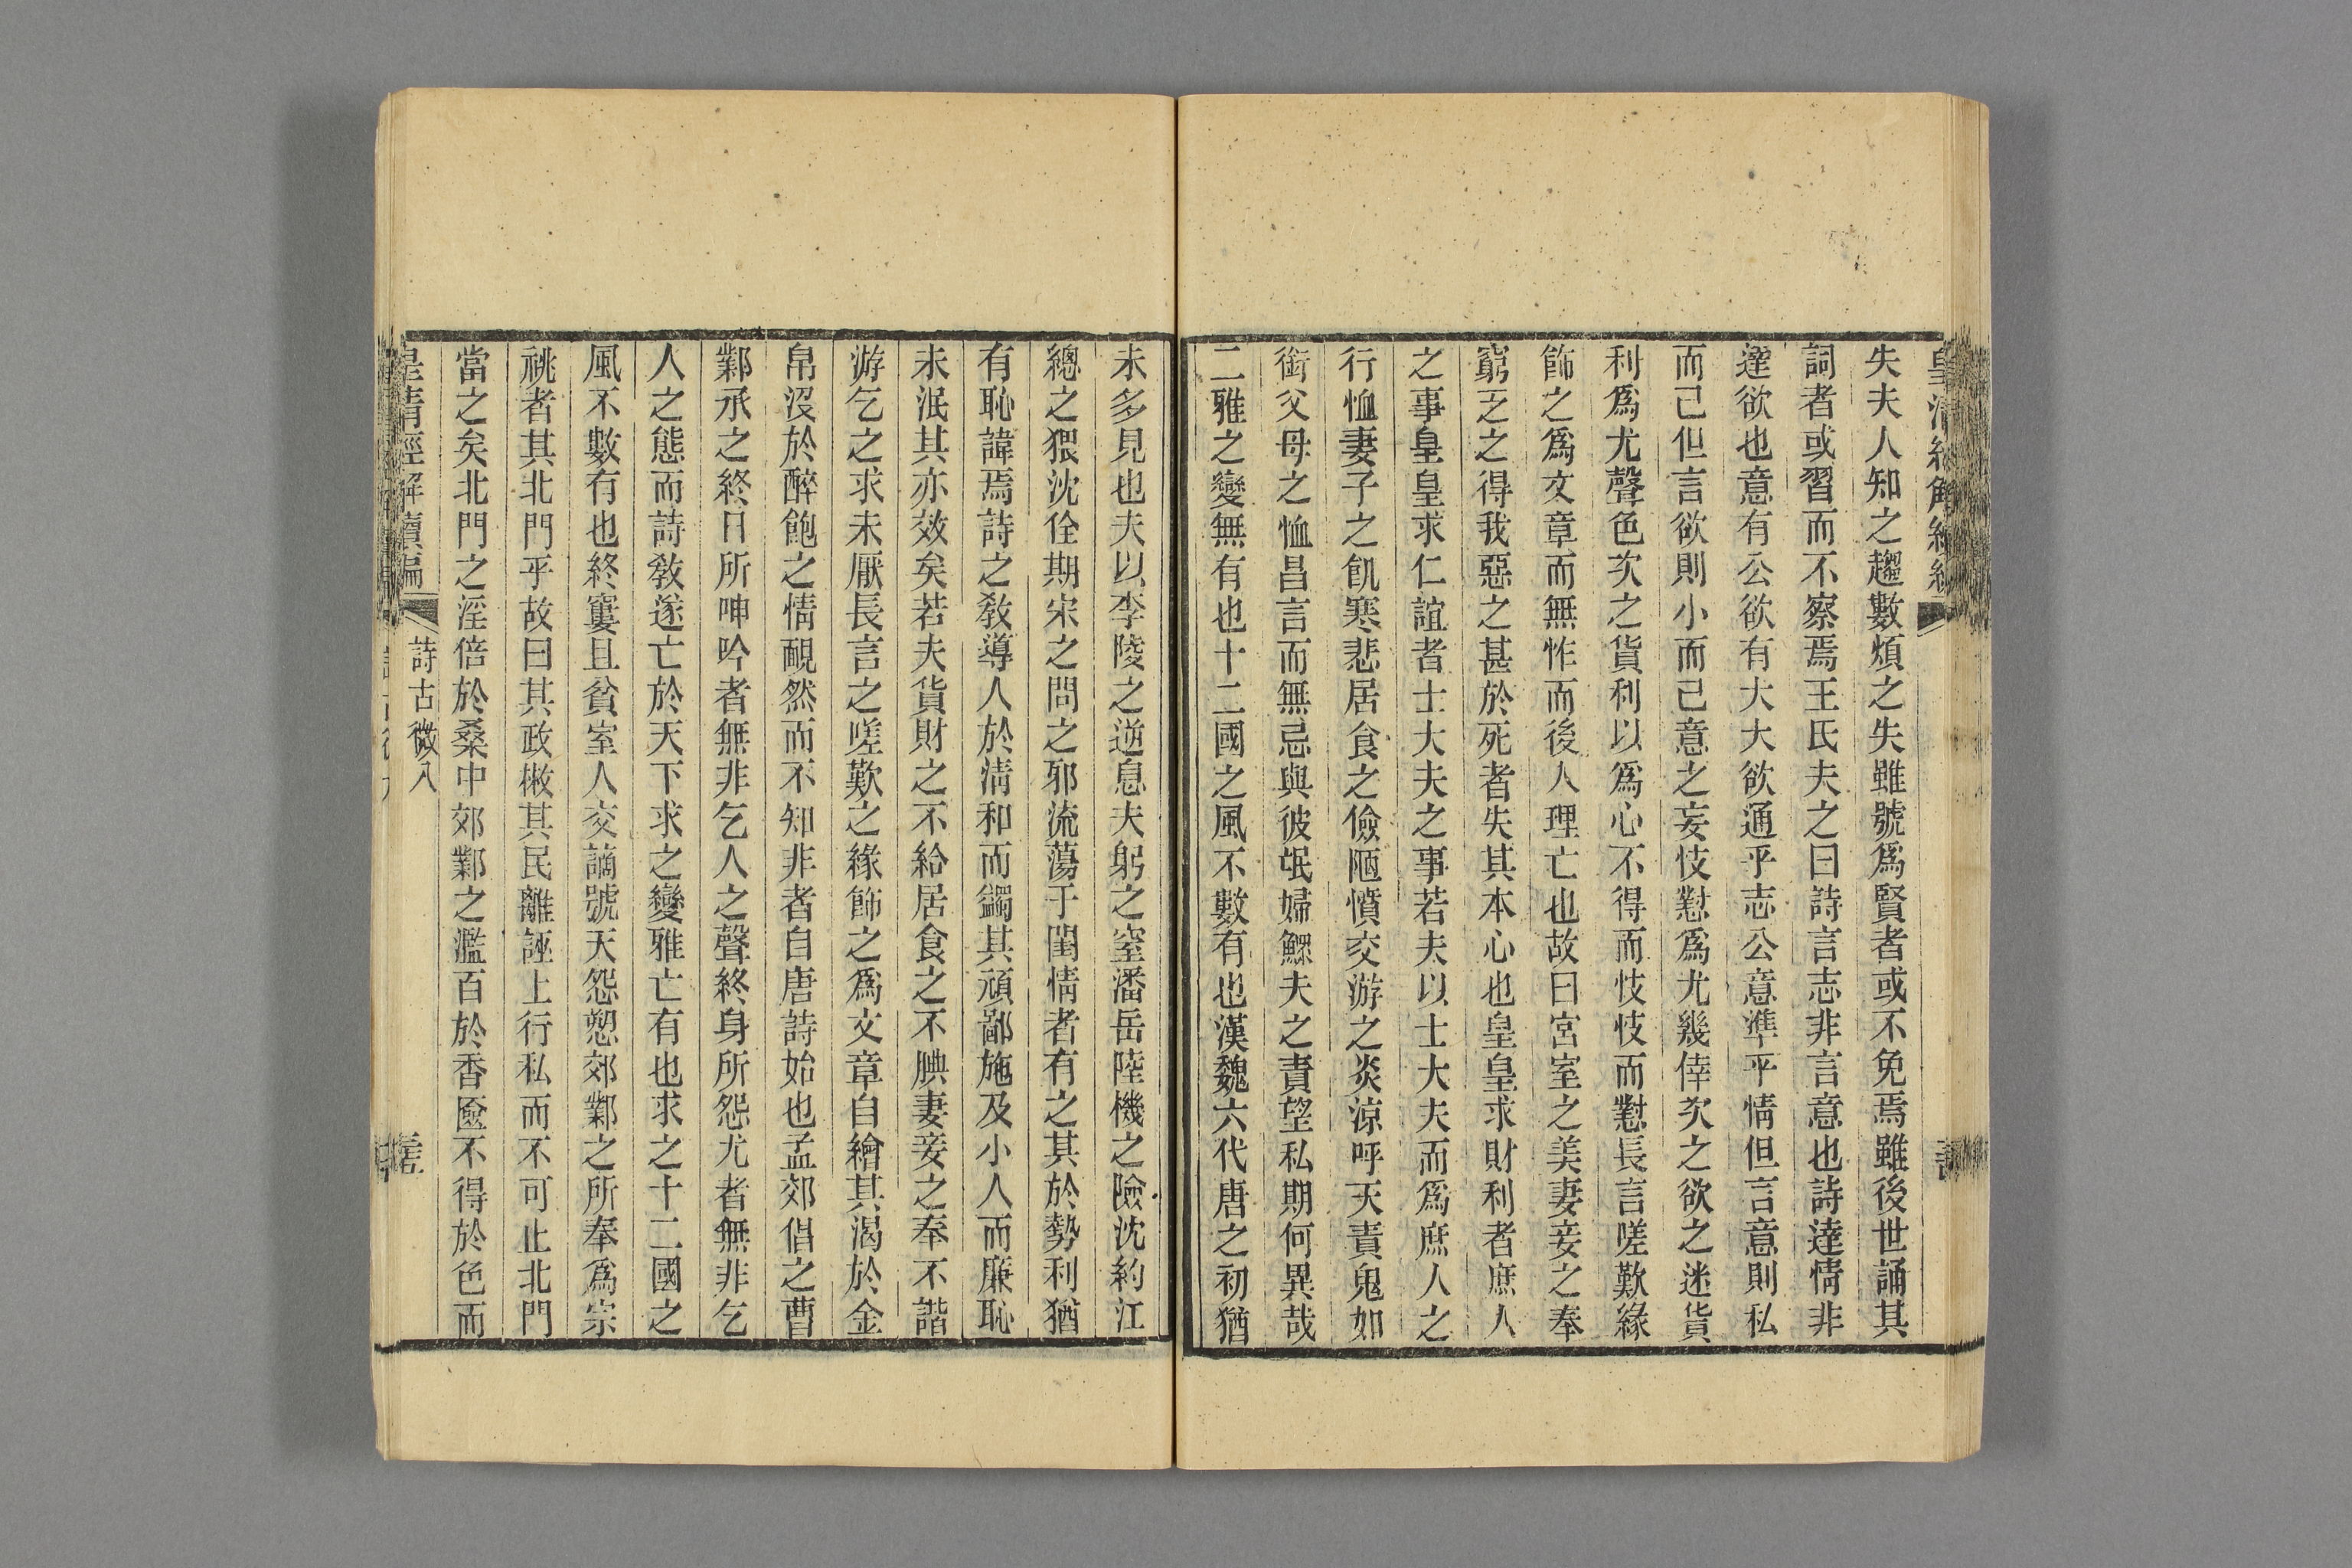 失夫人知之趨數煩之失雖號爲賢者或不免焉雖後世誦其
詞者或習而不察焉王氏夫之曰詩言志非言意也詩達情非
達欲也意有公欲有大大欲通乎志公意準乎情但言意則私
而已但言欲則小而已意之妄忮懟爲尤幾倖次之欲之迷貨
利爲尤聲色次之貨利以爲心不得而忮忮而懟長言嗟歎緣
飾之爲文章而無怍而後人理亡也故曰宮室之美妻妾之奉
窮乏之得我惡之甚於死者失其本心也皇皇求財利者庶人
之事皇皇求仁誼者士大夫之事若夫以士大夫而爲庶人之
行恤妻子之飢寒悲居食之儉陋憤交游之炎涼呼天責鬼如
銜父母之恤昌言而無忌與彼氓婦鰥夫之責望私期何異哉
二雅之變無有也十二國之風不數有也漢魏六代唐之初猶
未多見也夫以李陵之逆息夫躬之窒潘岳陸機之險沈約江
總之猥沈佺期宋之問之邪流蕩于閨情者有之其於勢利猶
有恥諱焉詩之敎導人於清和而蠲其頑鄙施及小人而廉恥
未泯其亦效矣若夫貨財之不給居食之不腆妻妾之奉不諧
游乞之求未厭長言之嗟歎之緣飾之爲文章自繪其渴於金
帛沒於醉飽之情靦然而不知非者自唐詩始也孟郊倡之曹
鄴承之終日所呻吟者無非乞人之聲終身所怨尤者無非乞
人之態而詩敎遂亡於天下求之變雅亡有也求之十二國之
風不數有也終窶且貧室人交謫號天怨愬郊鄴之所奉爲宗
祧者其北門乎故曰其政散其民離誣上行私而不可止北門
當之矣北門之淫倍於桑中郊鄴之濫百於香奩不得於色而
皇清經解續編
詩古微八